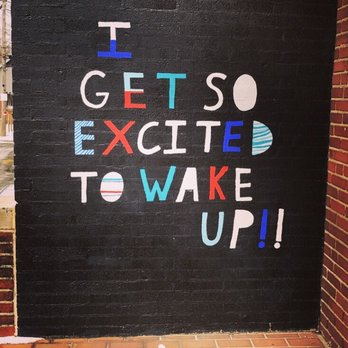 I
GET SO
EXCITED
TO WAKE
UP!!